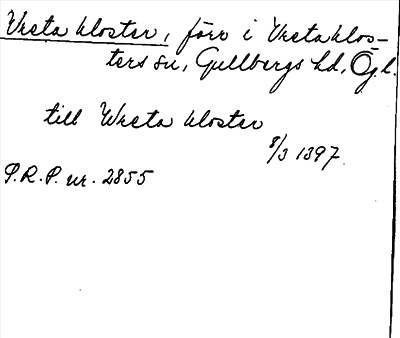 Vreta kloster, förr i Vretaklos-
ters sn, Gullbergs hd, Ögl.
till Wreta kloster
8/3 1397
P.R.P. nr. 2855